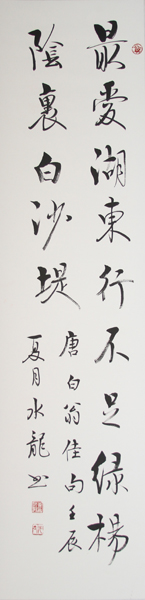 最愛湖東行不足綠楊
陰裏白沙堤
唐白翁佳句壬辰
夏月水龍书